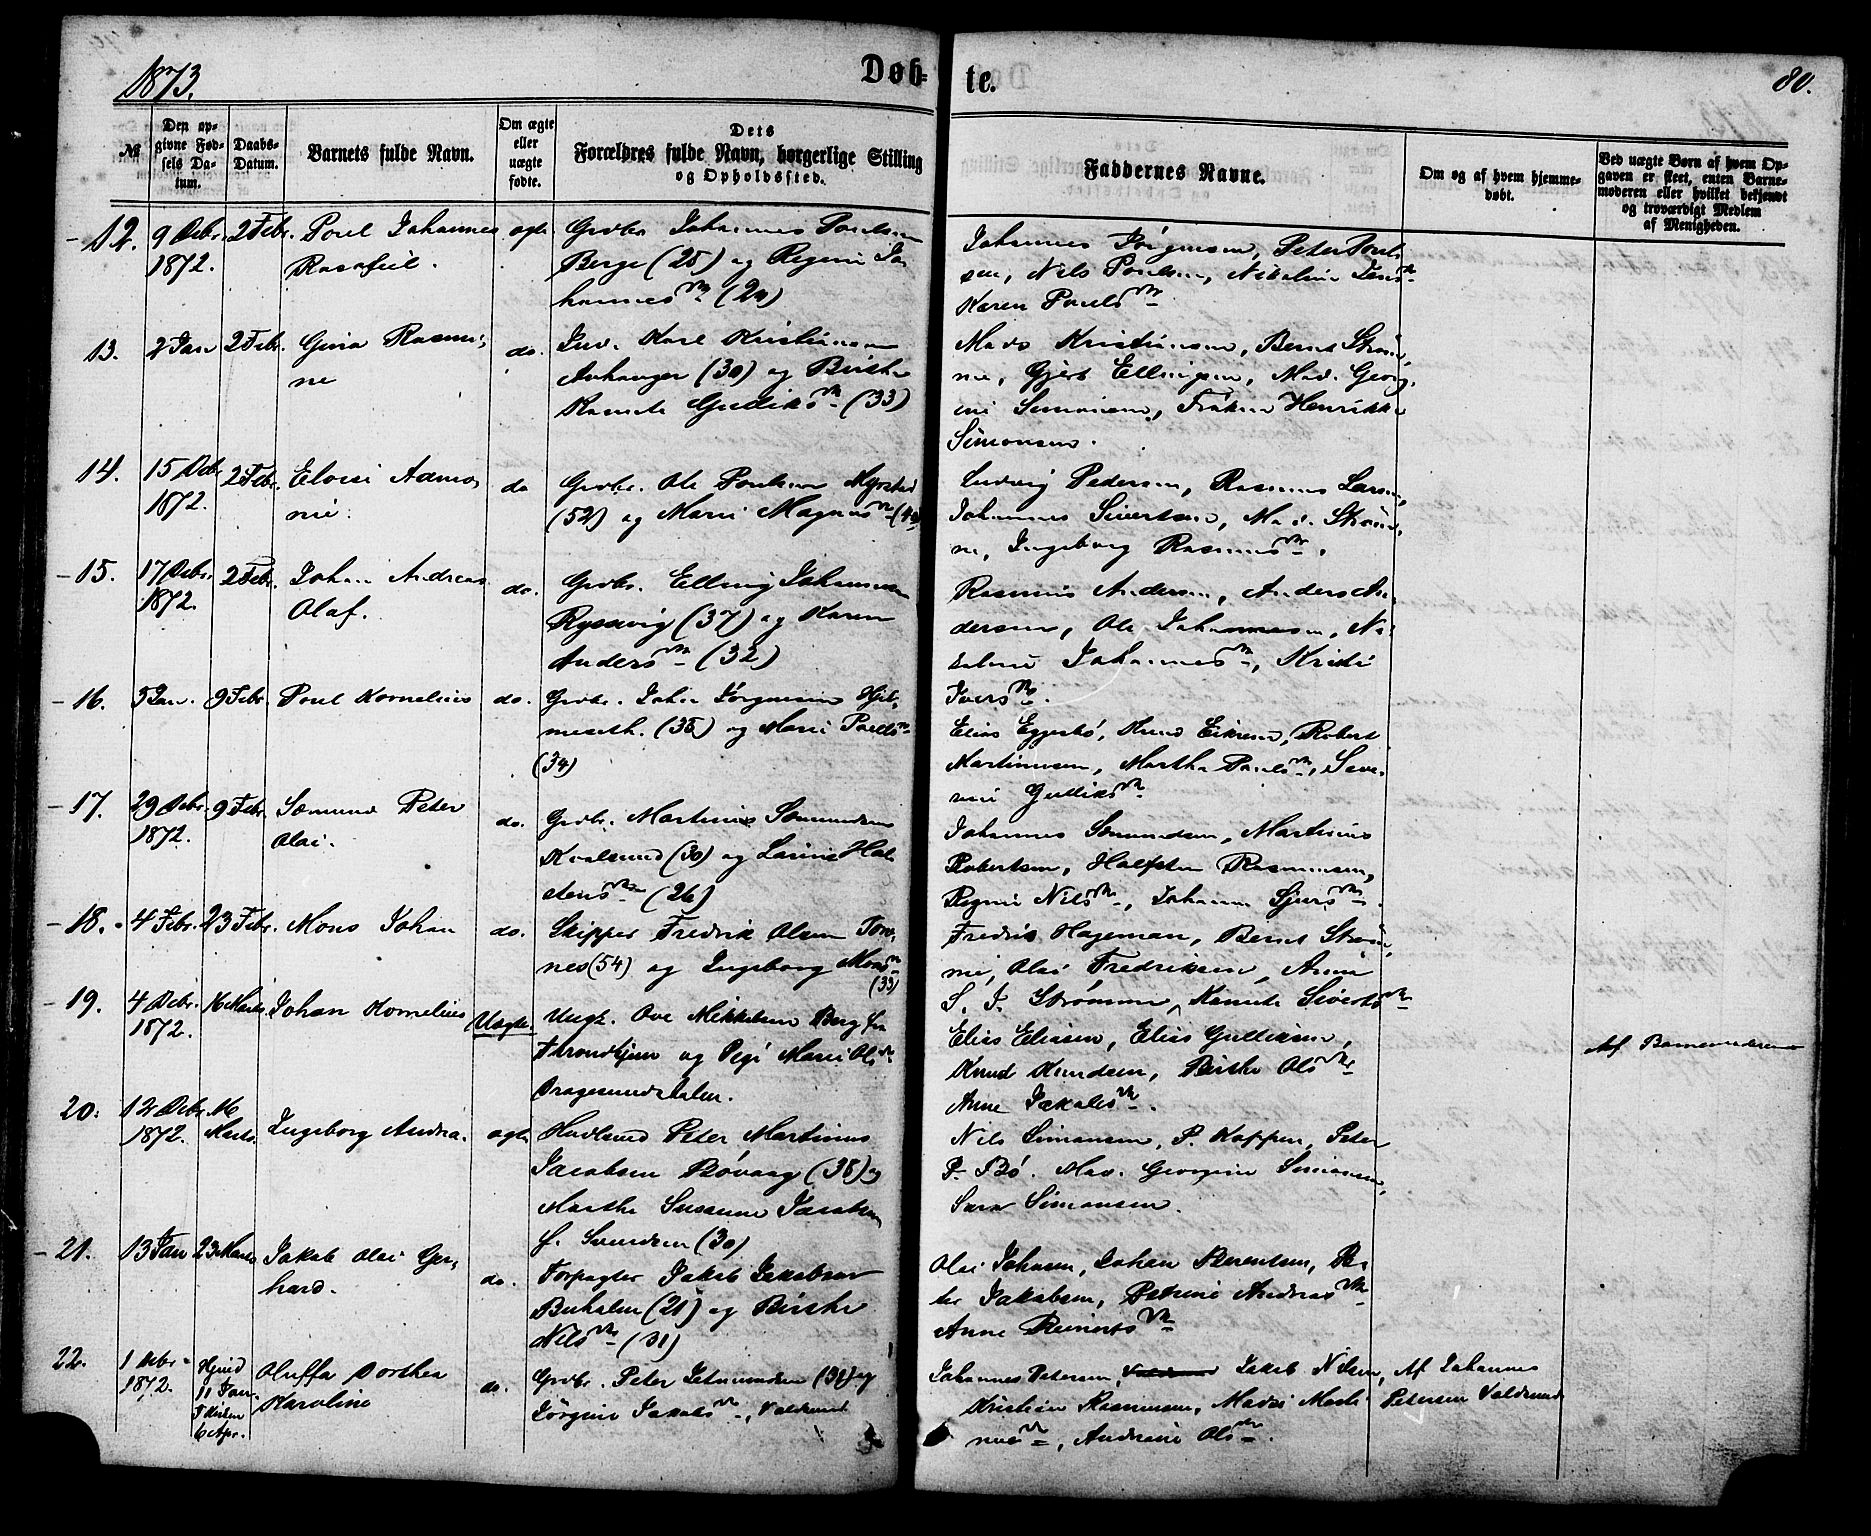 1873.
Døb-
te.
80.
№
Den op-
givne Fød-
sels Da-
tum.
Daabs-
Datum.
Barnets fulde Navn.
Om ægte
eller
uægte
fødte.
Dets
Forældres fulde Navn, borgerlige Stilling
og Opholdssted.
Faddernes Navne.
Om og af hvem hjemme-
døbt.
Ved uægte Børn af hvem Op-
gaven er skeet, enten Barne-
moderen eller hvilket bekjendt
og troværdigt Medlem
af Menigheden.
12. 9 Debr. 2 Febr. Poul Johannes ægte Grdbr. Johannes Poulsen
1872.
Berge (25) og Regine Jo
hannesdtr (24)
Johannes Jørgensen, Peter Poul-
sen, Nils Poulsen,
Karen Poulsdtr
13. 2 Jan 2 Febr. Gina Rasmi-
ne
do. Karl Kristiansen
(30) og Birthe
Gulliksdtr (33)
Mads Kristiansen, Bernt Strøm-
me, Gjert Ellingsen, Mad. Georgi-
ne Simonsen, Frøken Henrikke
Simonsen.
14. 15 Debr 2 Febr.
1872.
do Grdbr. Ole Poulsen Myrstad
(52) og Marie Magnusdtr
Ludvig Pedersen, Rasmus Larsen,
Johannes Sivertsen, Mad. Strøm-
me, Ingeborg Rasmusdtr.
15. 17 Debr. 2 Febr. Johan Andreas
1872.
Olaf.
do. Grdbr. Elling Johannesen
(37) og Karen
Andersdtr (32)
Rasmus Andersen, Anders An-
dersen, Ole Johannesen, Ni-
koline Johannesdtr,
Iversdtr.
16. 5 Jan. 9 Febr. Poul Kornelius do. Grdbr. Johan Jørgensen Hjel-
meseth. (35) og Marie Poulsdtr
(34)
Elias Eggesbø, Knud Eiksund, Robert
Martinussen, Martha Poulsdtr, Seve-
rine Gulliksdtr
17. 29 Debr. 9 Febr. Sæmund Peter
1872.
Olai.
do. Grdbr. Martinus Sæmundsen
Kvalsund (30) og Larine Hal-
stensdtr (26)
Johannes Sæmundsen, Martinus
Robertsen, Halfsten Rasmussen,
Regine Nilsdtr, Johanne Sjursdtr.
18. 4 Febr. 23 Febr. Mons Johan do. Skipper Fredrik Olsen
nes (54) og Ingeborg Monsdtr
(33)
Fredrik Hageman, Bernt Strøm-
me, Olai Fredriksen, Anne
S. J. Strømme, Sivertsdtr
19. 4 Debr. 16 Marts. Johan Kornelius Uægte. Ungk. Ove Mikkelsen Berg fra
1872.
Throndhjem og Pige Marie Olsdtr
Dragesundsdalen.
Elias Eliasen, Elias Gulliksen,
Knud Knudsen, Birthe Olsdtr
Anne Jakobsdtr.
Af Barnemoderen
20. 12 Debr 16
1872. Marts. Ingeborg Andrea. ægte Husmand Peter Martinus
Jacobsen Røvaag (38) og
Marthe Susanne Jacobsen
f. Svendsen (30)
Nils Simonsen, P. Koppen, Peter
P. Bø. Mad. Georgine Simonsen,
Sara Simonsen.
21. 13 Jan 23 Marts. Jakob Olai Ger-
hard.
do. Forpagter Jakob Jakobsen
(21) og Birthe
Nilsdtr (31)
Olai Johnsen, Johan Berentsen, Pe-
ter Jakobsen, Petrine Andreasdtr
Anne Reinertsdtr
22. 1 Debr. Hjemd
1872. 11 Jan.
I Kirken
6 Apr.
Oluffa Dorthea
Karoline
do. Grdbr. Peter (31) og
Jørgine Jakobsdtr, Voldsund
Johannes Petersen, Jakob Nilsen,
Kristian Rasmussen, Marti-
nusdtr, Andrine Olsdtr.
Af Johannes
Petersen Voldsund